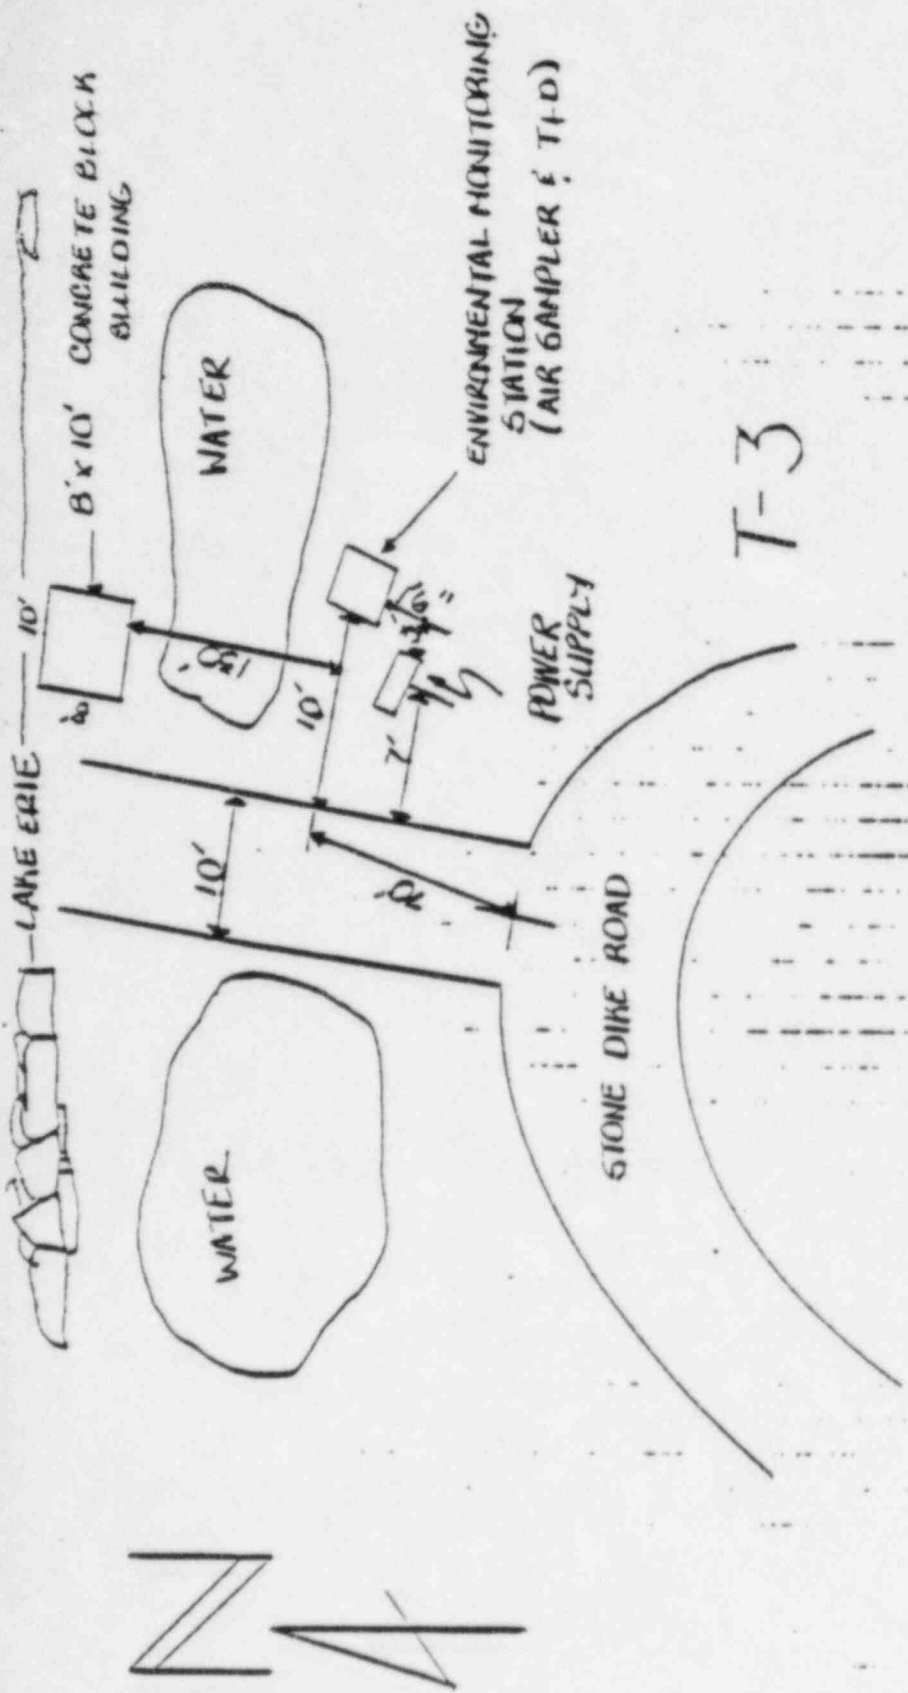 LAKE ERIE
10'
8' x 10' CONCRETE BLOCK
BUILDING
8'
WATER
15'
10'
10'
7'
ENVIRONMENTAL MONITORING
STATION
(AIR SAMPLER & TLD)
POWER
SUPPLY
WATER
STONE DIKE ROAD
T-3
N